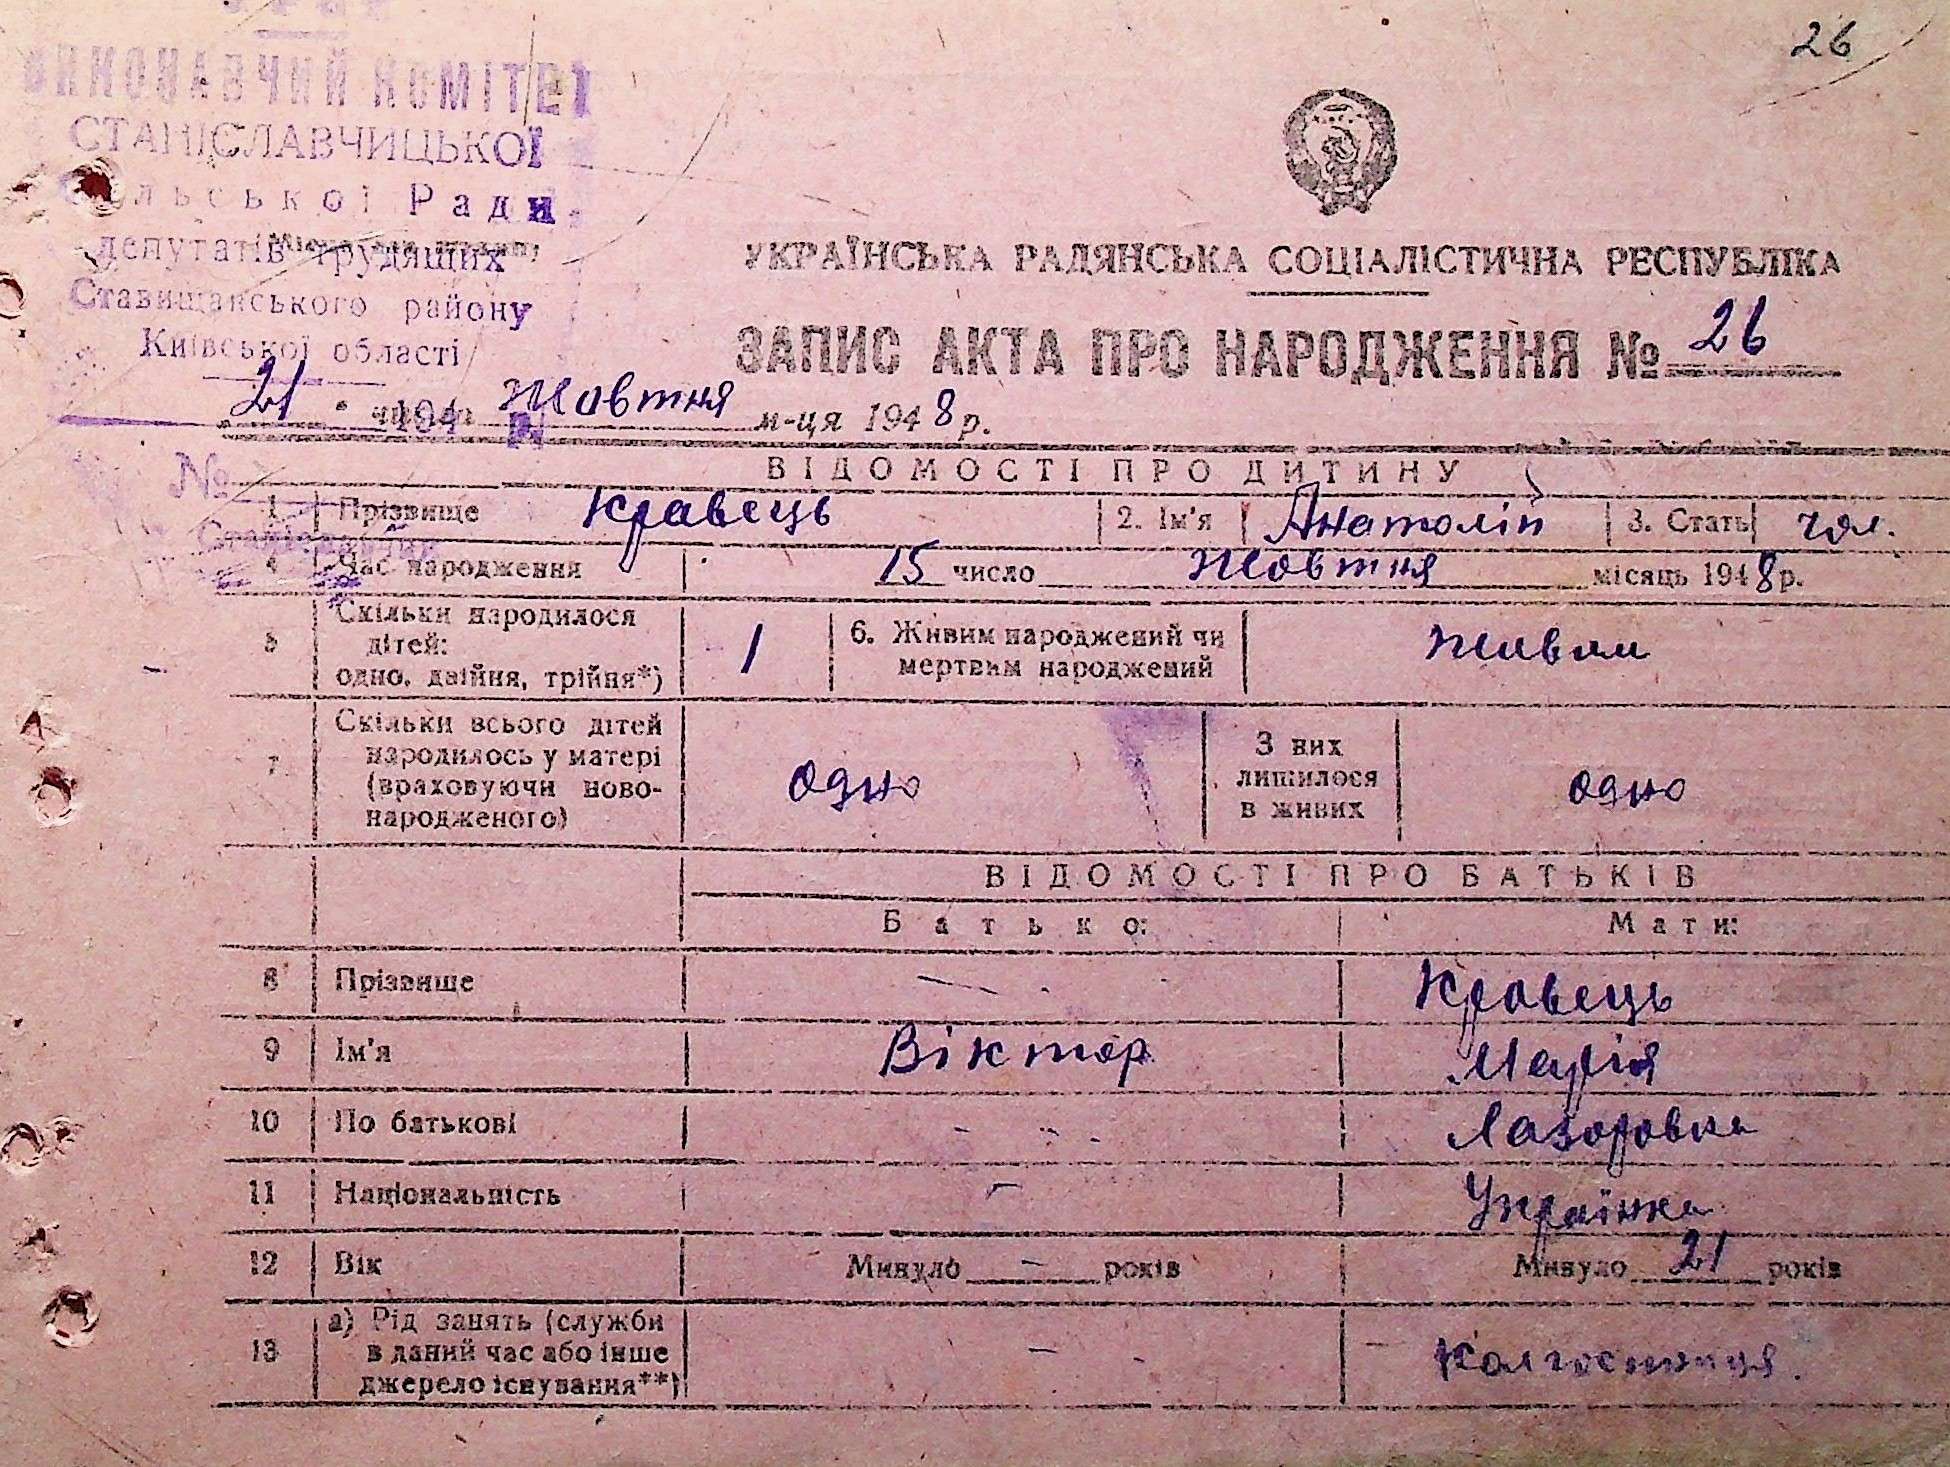 26
УРСР
ВИКОНАВЧИЙ КОМІТЕТ
СТАНІСЛАВЧИЦЬКОЇ
Сільської Ради
депутатів трудящих
Ставищанського району
Київської області
УКРАЇНСЬКА РАДЯНСЬКА СОЦІАЛІСТИЧНА РЕСПУБЛІКА
ЗАПИС АКТА ПРО НАРОДЖЕННЯ № 26
21 Жовтня м-ця 1948 р.
№
ВІДОМОСТІ ПРО ДИТИНУ
1 Прізвище Кравець 2. Ім'я Анатолій 3. Стать чол.
4 Час народження 15 число Жовтня місяць 1948 р.
5 Скільки народилося дітей: одно, двійня, трійня*) 1 6. Живим народжений чи мертвим народжений живим
7 Скільки всього дітей народилось у матері (враховуючи ново-народженого) одно З них лишилося в живих одно
ВІДОМОСТІ ПРО БАТЬКІВ
Батько: Мати:
8 Прізвище — Кравець
9 Ім'я Віктор Марія
10 По батькові - - Лазоровна
11 Національність - Українка
12 Вік Минуло - років Минуло 21 років
13 а) Рід занять (служби в даний час або інше джерело існування**) - Колгоспниця.